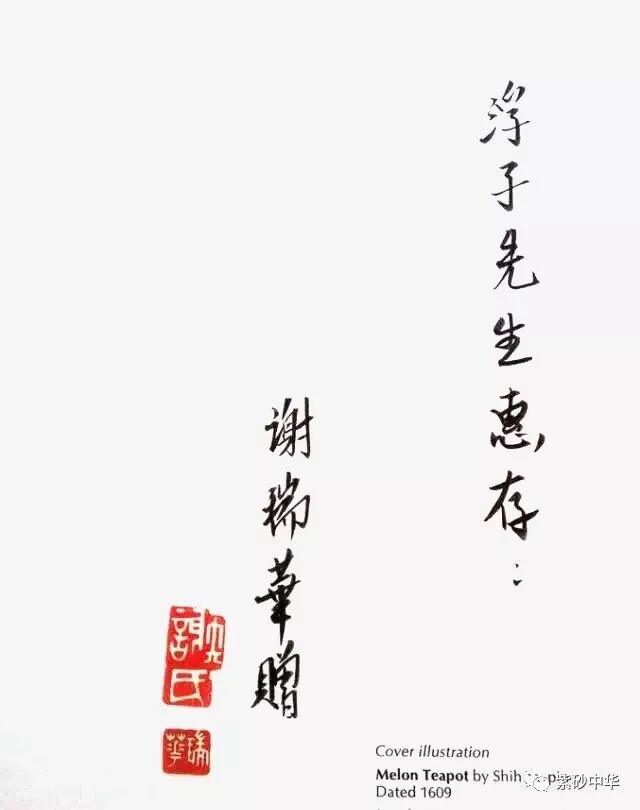 子先生惠存：
谢瑞華贈
謝氏
瑞華
Cover illustration
Melon Teapot by Shih
Dated 1609
紫砂中华